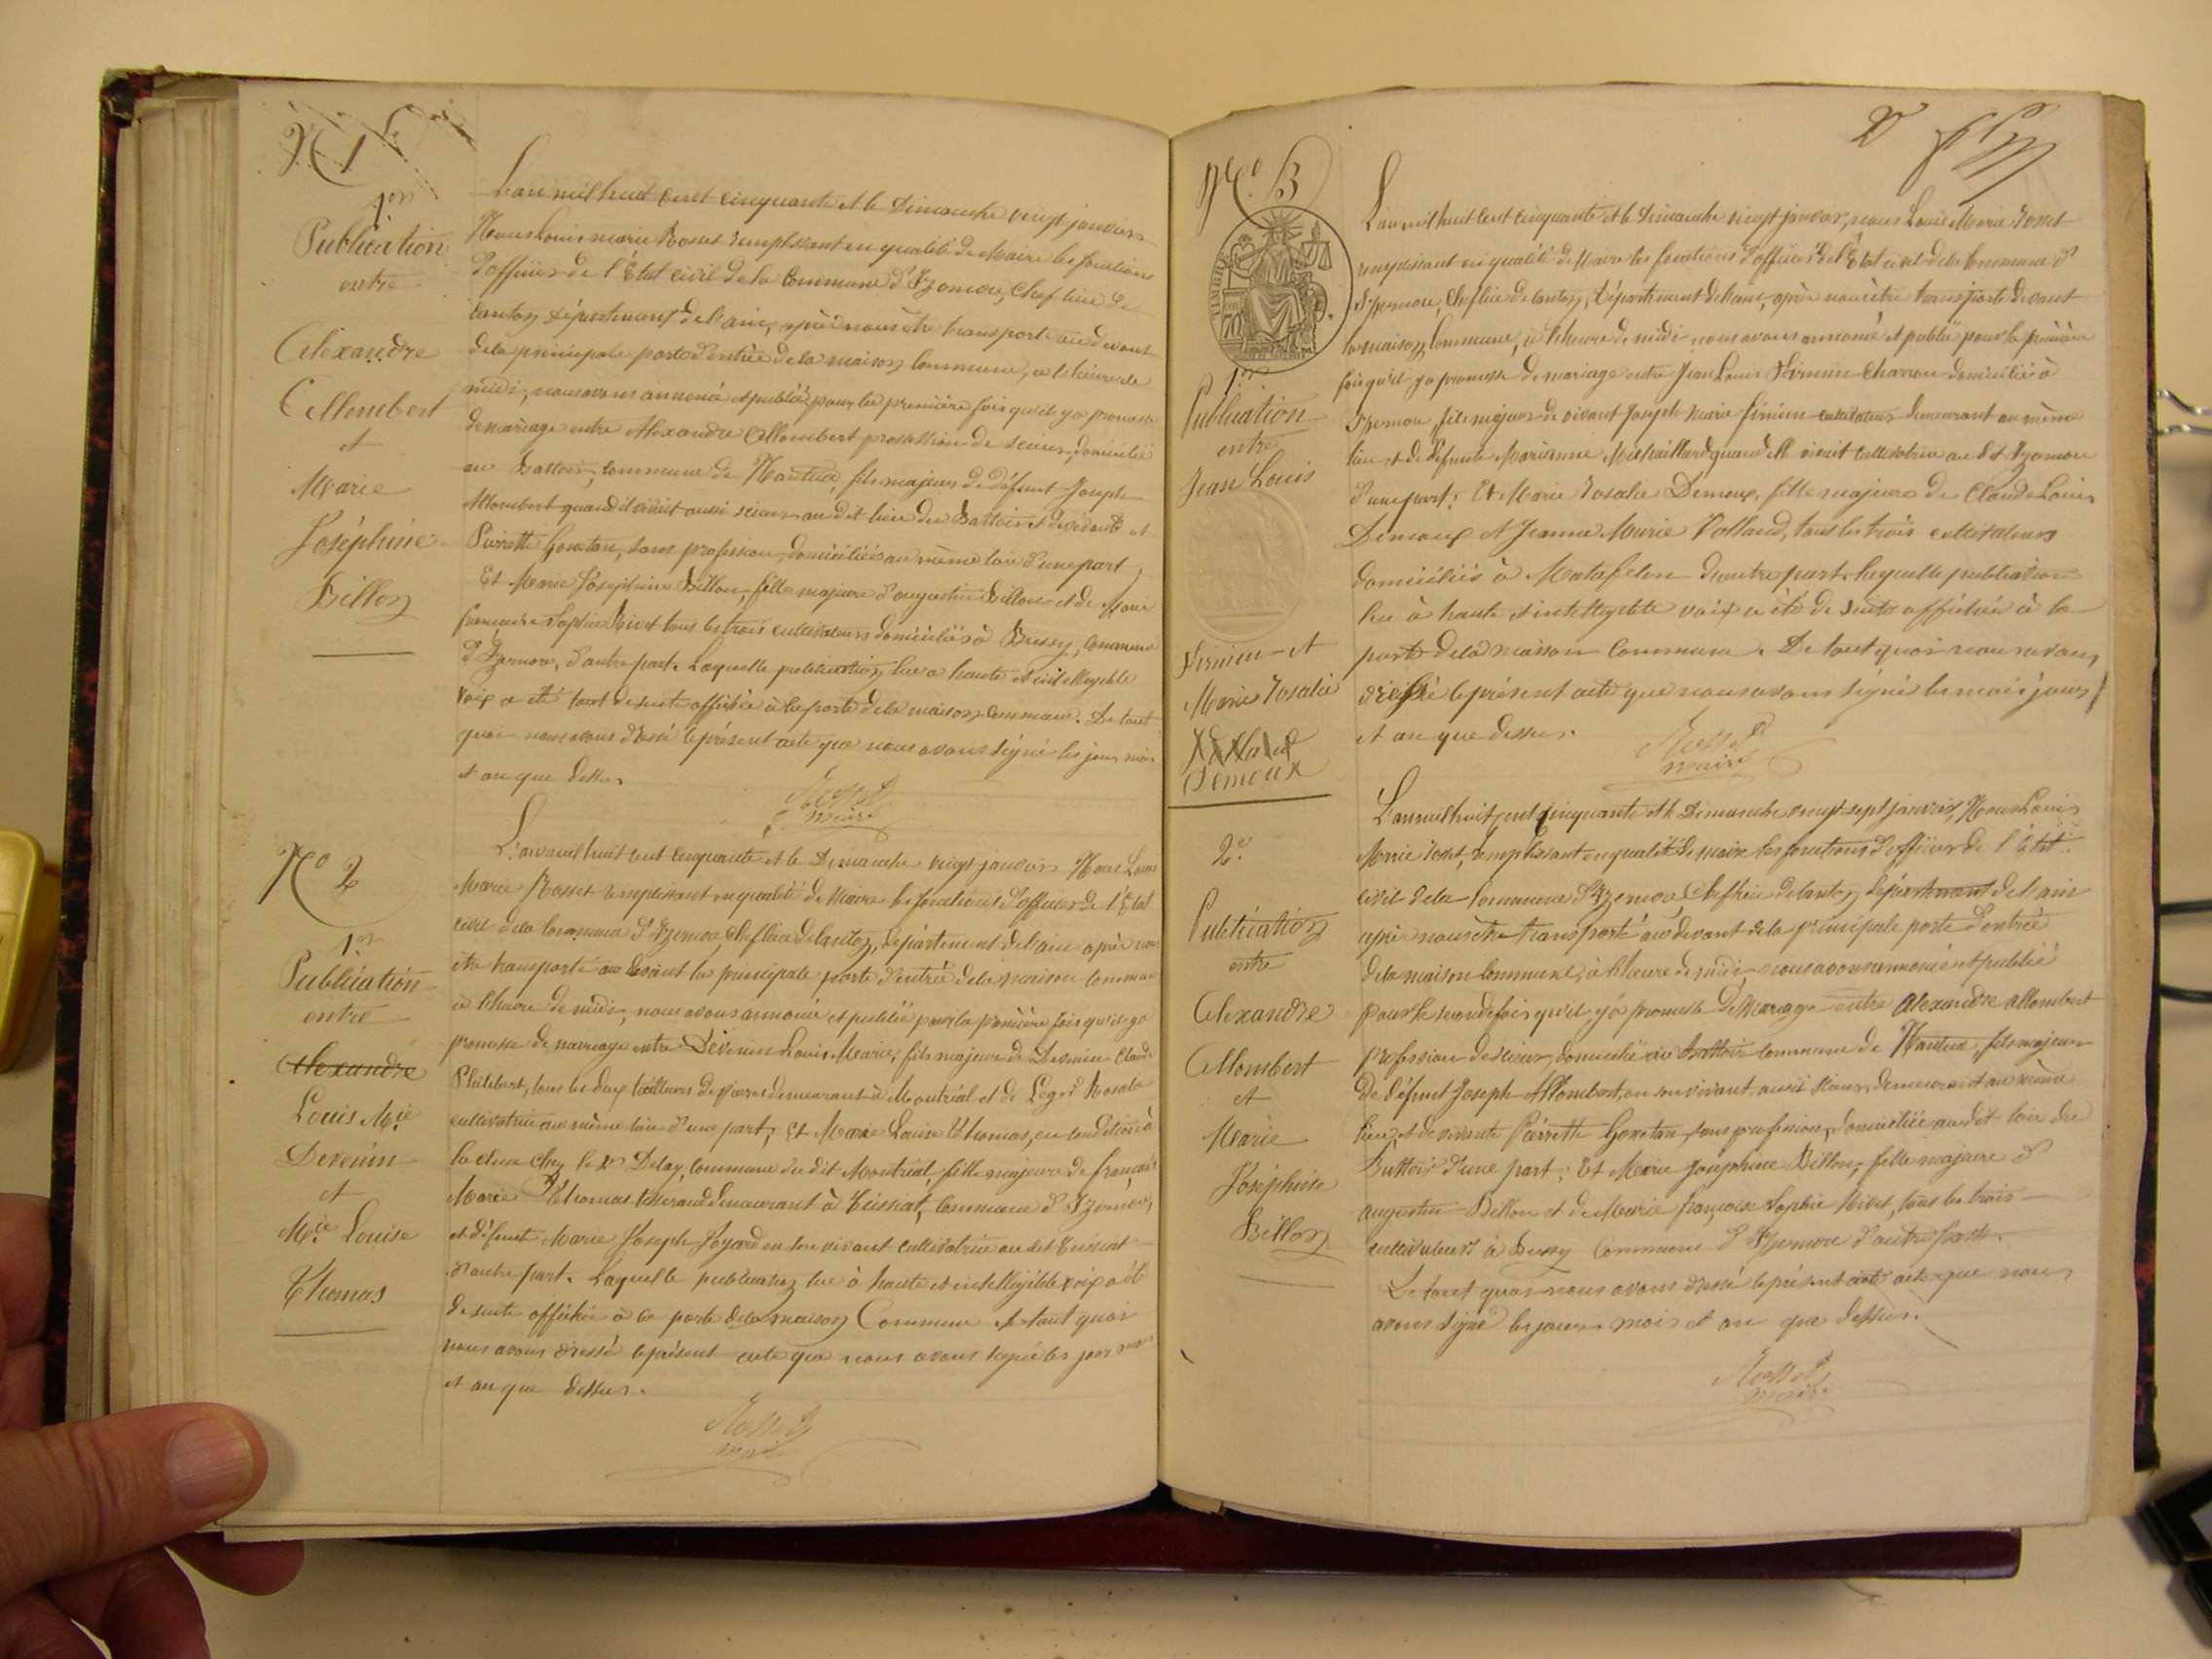 N° 1
1re
Publication
entre
Alexandre
Allombert
et
Marie
Joséphine
Billon
L'an mil huit cent cinquante et le Dimanche vingt janvier
Nous Louis marie Rosset remplissant en qualité de Maire les fonctions
d'officier de l'État civil de la Commune d'Izernore, Chef lieu de
Canton département de l'ain, après nous être transporté au devant
de la principale porte d'entrée de la maison Commune, à l'heure de
midi, nous avons annoncé et publié pour la première fois qu'il y a promesse
de mariage entre Alexandre Allombert profession de scieur, domicilié
au Battoir, Commune de Nantua, fils majeur de défunt Joseph
Allombert quand il vivait aussi scieur au dit lieu du Battoir et de vivante
Pierrette Goneton, sans profession, domiciliée au même lieu d'une part
Et Marie Joséphine Billon, fille majeure d'augustin Billon et de Marie
françoise Sophie Nivet tous les trois cultivateurs domiciliés à Bussy, Commune
d'Izernore, d'autre part. Laquelle publication lue a haute et intelligible
voix a été tout de suite affichée à la porte de la maison commune. De tout
quoi nous avons dressé le présent acte que nous avons signé les jour, mois
et an que dessus
Rosset
maire
N° 2
1re
Publication
entre
Alexandre
Louis Mie
Devenin
et
Mie Louise
Thomas
L'an mil huit cent cinquante et le Dimanche vingt janvier Nous Louis
Marie Rosset remplissant en qualité de Maire les fonctions d'officier de l'État
civil de la Commune d'Izernore, Chef lieu de Canton, département de l'ain après nous
être transporté au devant la principale porte d'entrée de la maison commune
à l'heure de midi, nous avons annoncé et publié pour la première fois qu'il y a
promesse de mariage entre Devenin Louis Marie, fils majeur de Devenin Claude
Philibert, tous les deux tailleurs de pierres demeurant à Montréal et de Rosalie
cultivatrice au même lieu d'une part; Et Marie Louise Thomas, en condition à
la cluse chez le Sr Delay, Commune du dit Montréal, fille majeure de françois
Marie Thomas tisserand demeurant à Ceissiat, Commune d'Izernore,
et défunte Marie Joseph Joyard en son vivant cultivatrice au dit Ceissiat
d'autre part. Laquelle publication lue à haute et intelligible voix a été
de suite affichée à la porte de la maison Commune de tout quoi
nous avons dressé le présent acte que nous avons signé les jour mois
et an que dessus.
Rosset
maire
2
N° 3
TIMBRE
1re
Publication
entre
Jean Louis
Firmin et
Marie Rosalie
Demoux
L'an mil huit cent cinquante et le dimanche vingt janvier, nous Louis Marie Rosset
remplissant en qualité de Maire les fonctions d'officier de l'État civil de la Commune d'
Izernore, Chef lieu de Canton, Département de l'ain, après nous être transporté devant
la maison Commune, à l'heure de midi nous avons annoncé et publié pour la première
fois qu'il y a promesse de mariage entre Jean Louis Firmin Charron domicilié à
Izernore, fils majeur de vivant Joseph Marie firmin cultivateur demeurant au même
lieu et de défunte Marianne quand elle vivait cultivatrice au dit Izernore
d'une part; Et Marie Rosalie Demoux, fille majeure de Claude Louis
Demoux et Jeanne Marie Volland, tous les trois cultivateurs
domiciliés à Matafelon d'autre part. laquelle publication
lue à haute et intelligible voix a été de suite affichée à la
porte de la maison Commune. De tout quoi nous avons
dressé le présent acte que nous avons signé les mois jour
et an que dessus.
Rosset
maire
2e
Publication
entre
Alexandre
Allombert
et
Marie
Joséphine
Billon
L'an mil huit cent cinquante et le Dimanche vingt sept janvier, Nous Louis
Marie Rosset, remplissant en qualité de maire les fonctions d'officier de l'État
civil de la Commune d'Izernore Chef lieu de Canton département de l'ain
après nous être transporté au devant de la principale porte d'entrée
de la maison Commune, à l'heure de midi nous avons annoncé et publié
pour la seconde fois qu'il y a promesse de Mariage entre Alexandre Allombert
profession de scieur, domicilié au battoir commune de Nantua, fils majeur
de défunt Joseph Allombert, en son vivant aussi scieur, demeurant au même
lieu, et de vivante Pierrette Goneton sans profession, domiciliée au dit lieu du
Battoir d'une part; Et Marie Joséphine Billon, fille majeure d'
augustin Billon et de Marie françoise Sophie Nivet, tous les trois
cultivateurs à Bussy Commune d'Izernore d'autre part.
De tout quoi nous avons dressé le présent acte acte que nous
avons signé les jour mois et an que dessus.
Rosset
maire